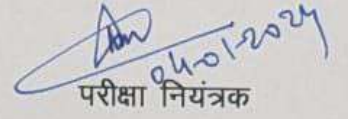 04-01-2024
परीक्षा नियंत्रक